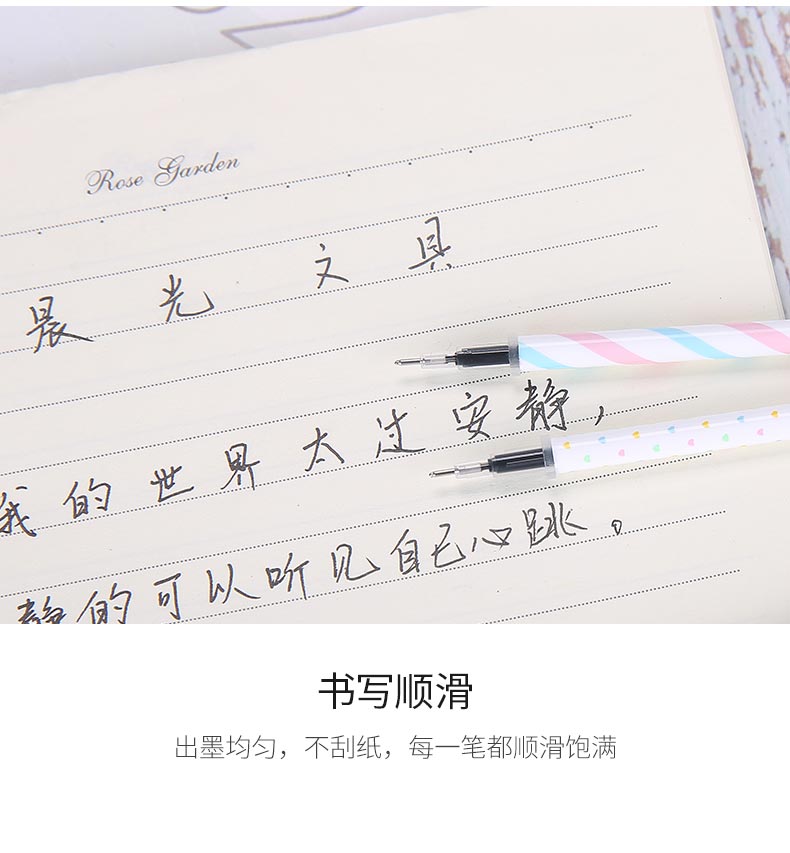 Rose Garden
晨光文具
我的世界太过安静，
静的可以听见自己心跳。
书写顺滑
出墨均匀，不刮纸，每一笔都顺滑饱满